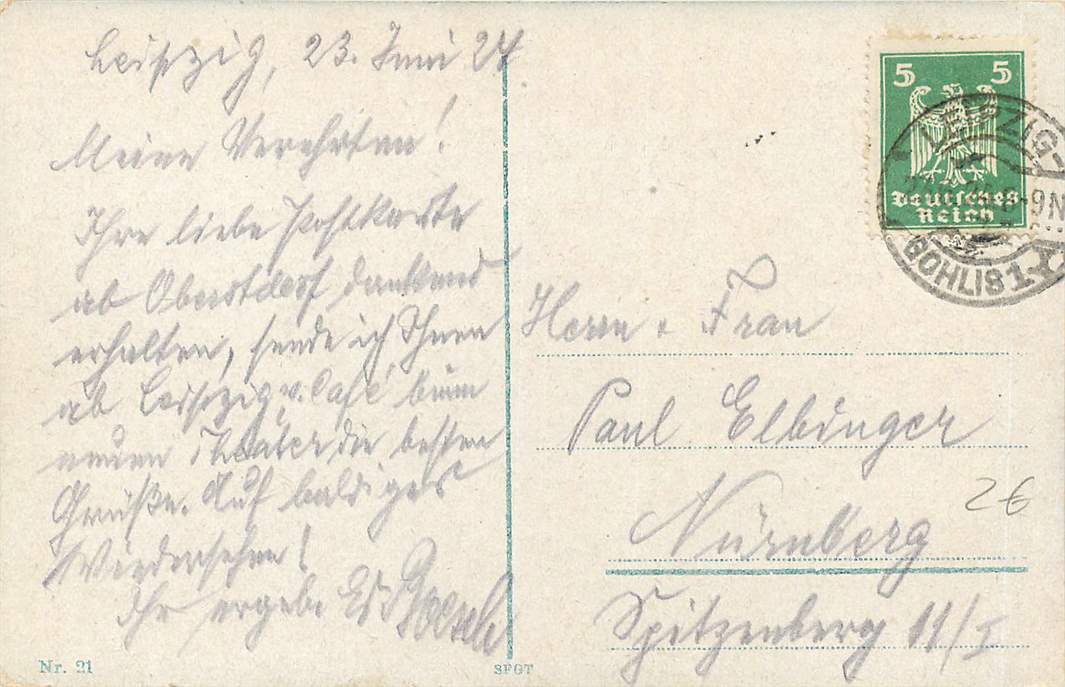 Leipzig, 23. Juni 24
Meine Verehrten!
Ihre liebe Postkarte
ab Oberstdorf dankend
erhalten, sende ich Ihnen
ab Leipzig v. Café beim
neuen Theater die besten
Grüße. Auf baldiges
Wiedersehen!
Ihr ergeb.
Nr. 21
SFGT
5 5
Deutsches
Reich
LEIPZIG-
GOHLIS 1
Herrn & Frau
Paul Elbinger
Nürnberg
Spitzenberg 11/I
2€